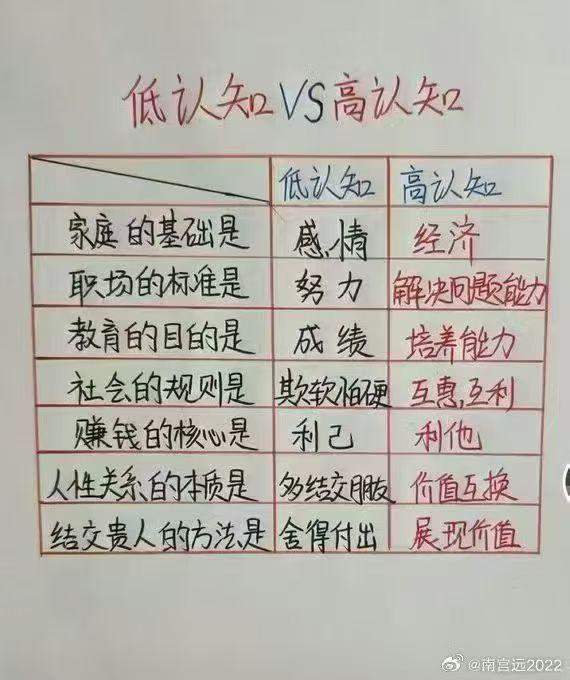 低认知VS高认知
低认知 高认知
家庭的基础是 感情 经济
职场的标准是 努力 解决问题能力
教育的目的是 成绩 培养能力
社会的规则是 欺软怕硬 互惠,互利
赚钱的核心是 利己 利他
人性关系的本质是 多结交朋友 价值互换
结交贵人的方法是 舍得付出 展现价值
@南宫远2022